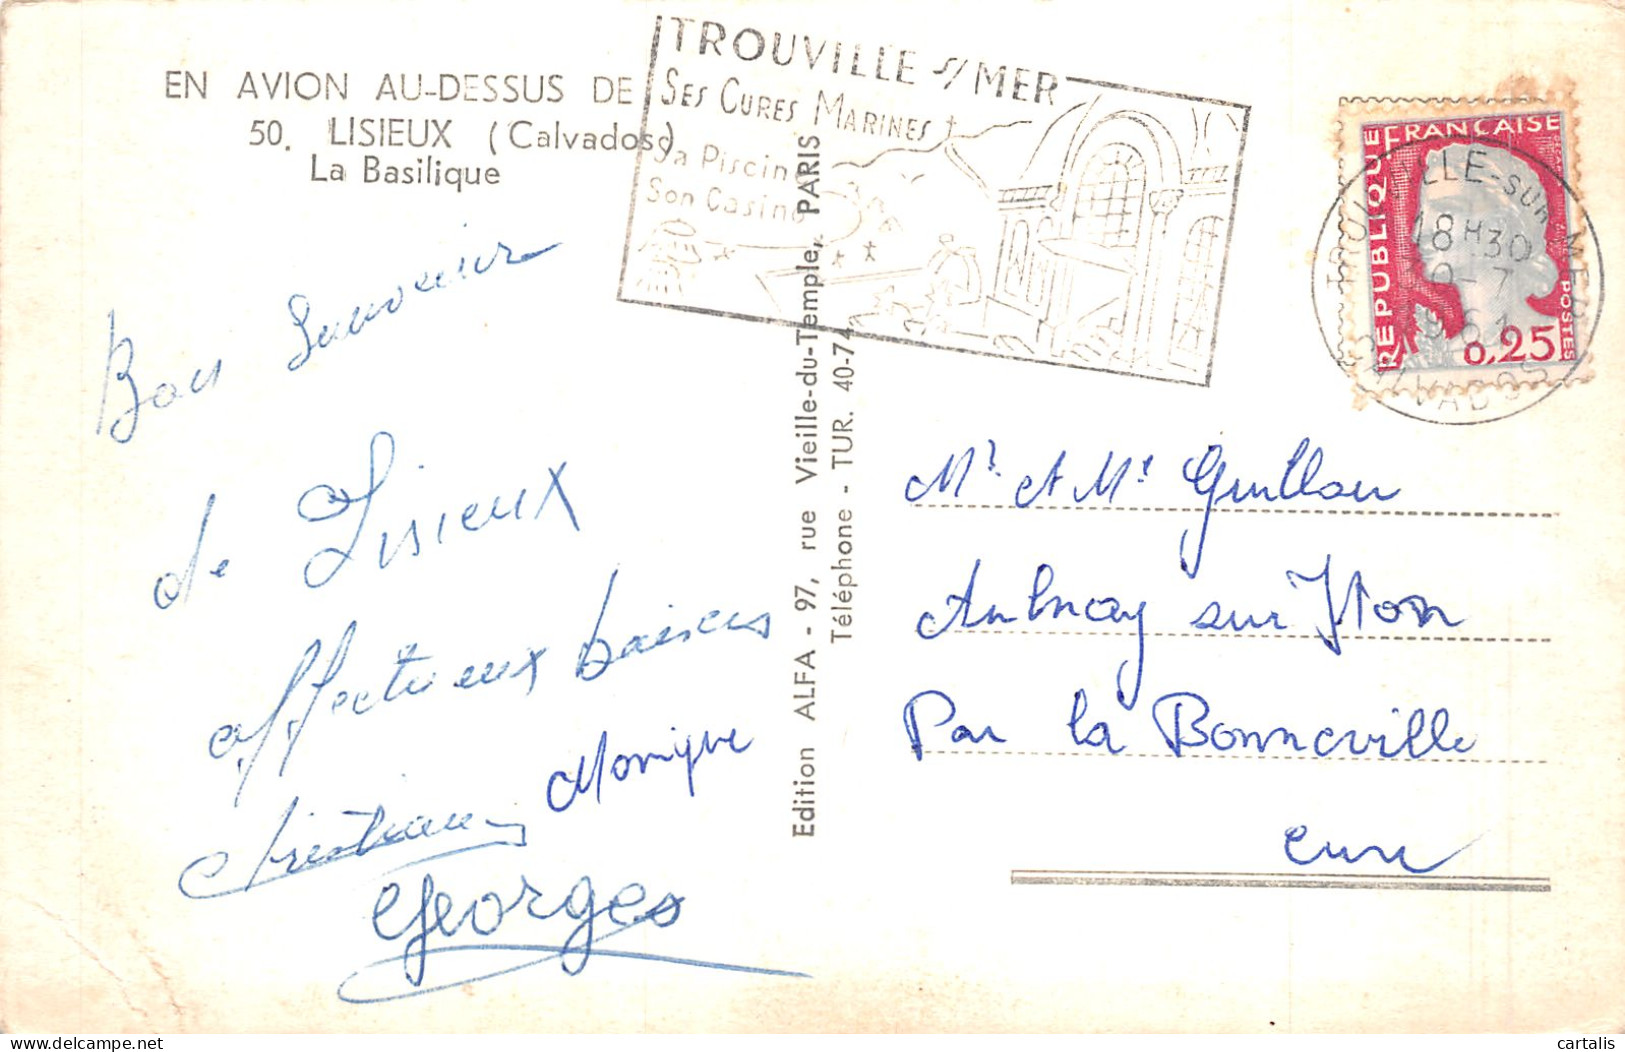 EN AVION AU-DESSUS DE
50. LISIEUX (Calvados)
La Basilique
TROUVILLE s/ MER
Ses Cures Marines
Sa Piscine
Son Casino
REPUBLIQUE FRANÇAISE
POSTES
0,25
TROUVILLE-SUR-MER
18H30
-7
1961
CALVADOS
Bon Souvenir
de Lisieux
affectueux baisers
Monique
Christiane
Georges
Edition ALFA - 97, rue Vieille-du-Temple, PARIS
Téléphone - TUR. 40-74
Mr et Me Guillou
Aulnay sur Iton
Par la Bonneville
Eure
cartalis